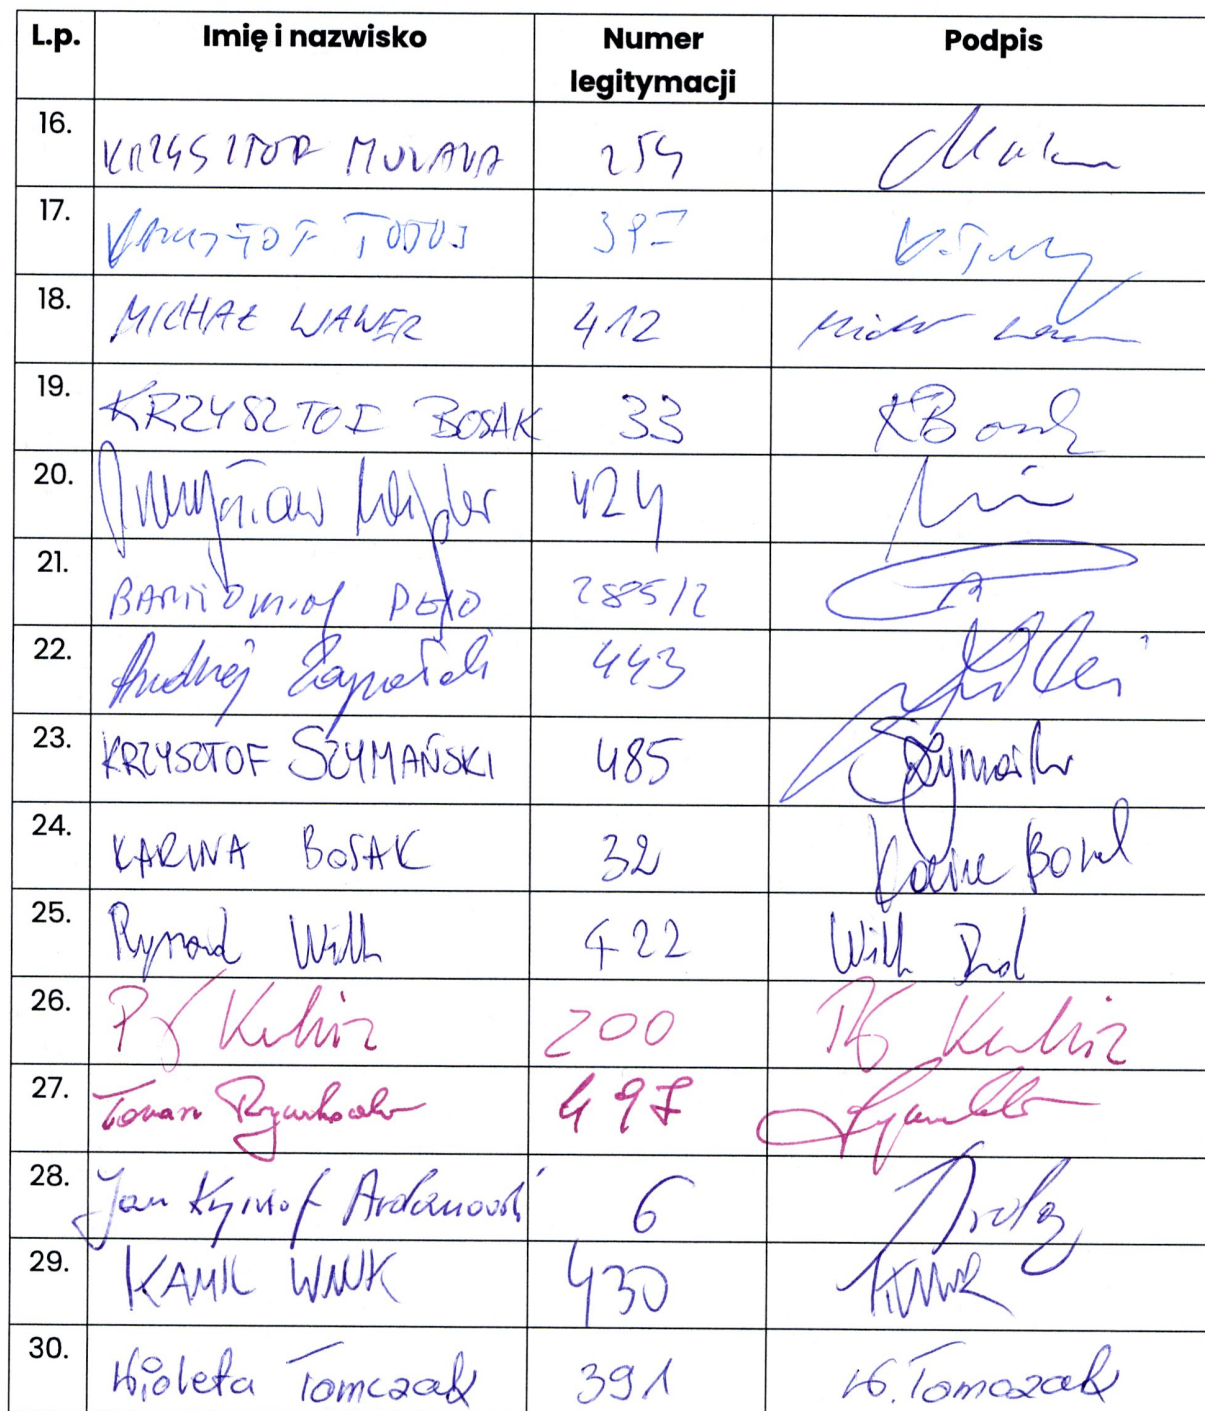 L.p. Imię i nazwisko Numer legitymacji Podpis
16. KRZYSZTOF MULAWA 254
17. KRZYSZTOF TUDUJ 397 K. Tuduj
18. MICHAŁ WAWER 412 Michał Wawer
19. KRZYSZTOF BOSAK 33 KBosak
20. Przemysław Wipler 424
21. BARTŁOMIEJ PEJO 285/2
22. Andrzej Zapałowski 443
23. KRZYSZTOF SZYMAŃSKI 485 Szymański
24. KARINA BOSAK 32 Karina Bosak
25. Ryszard Wilk 422 Wilk
26. Kukiz 200 Kukiz
27. 497
28. Jan Krzysztof Ardanowski 6
29. KAMIL WNUK 430 KWNUK
30. Wioleta Tomczak 391 W. Tomczak